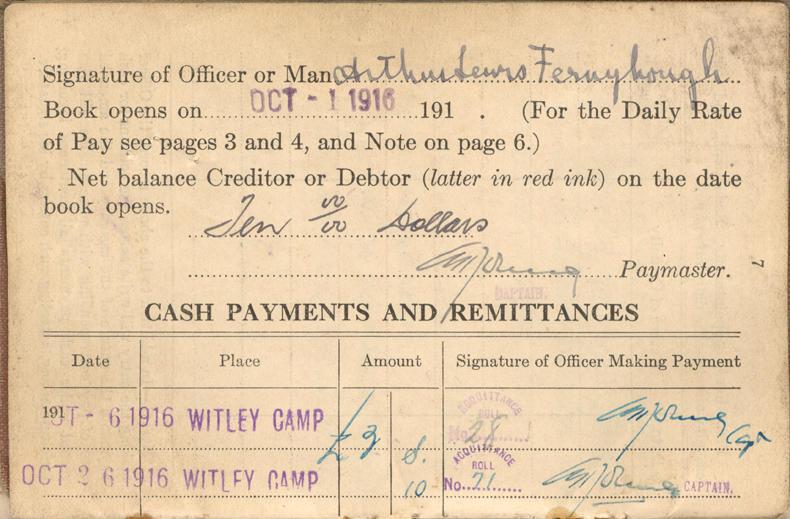 Signature of Officer or Man Arthur Lewis Fernyhough
Book opens on OCT - 1 1916 191 . (For the Daily Rate
of Pay see pages 3 and 4, and Note on page 6.)
Net balance Creditor or Debtor (latter in red ink) on the date
book opens.
Ten 00/00 Dollars
Paymaster. 7
CAPTAIN.
CASH PAYMENTS AND REMITTANCES
Date Place Amount Signature of Officer Making Payment
191
CT - 6 1916 WITLEY CAMP £3 ACQUITTANCE ROLL No. 28 Capt
OCT 2 6 1916 WITLEY CAMP 10 ACQUITTANCE ROLL No. 71 CAPTAIN.